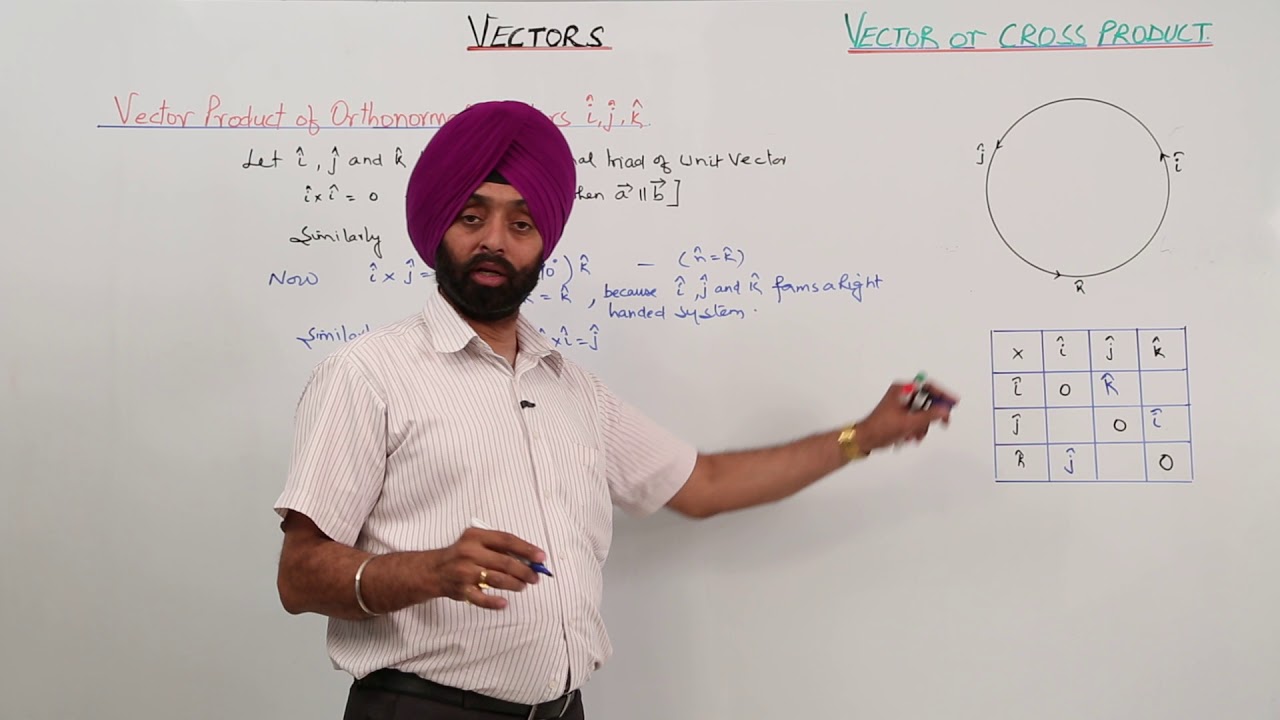 VECTORS
VECTOR or CROSS PRODUCT.
Vector Product of Orthonorm î, ĵ, k̂
Let î, ĵ and k̂ triad of unit Vector
î×î = 0 when a⃗ ∥ b⃗ ]
Similarly
Now î × ĵ = ) k̂ — (n̂ = k̂)
= k̂ , because î, ĵ and k̂ forms a Right
handed system.
×î = ĵ
ĵ
î
k
× î ĵ k̂
î 0 k̂
ĵ 0 î
k̂ ĵ 0